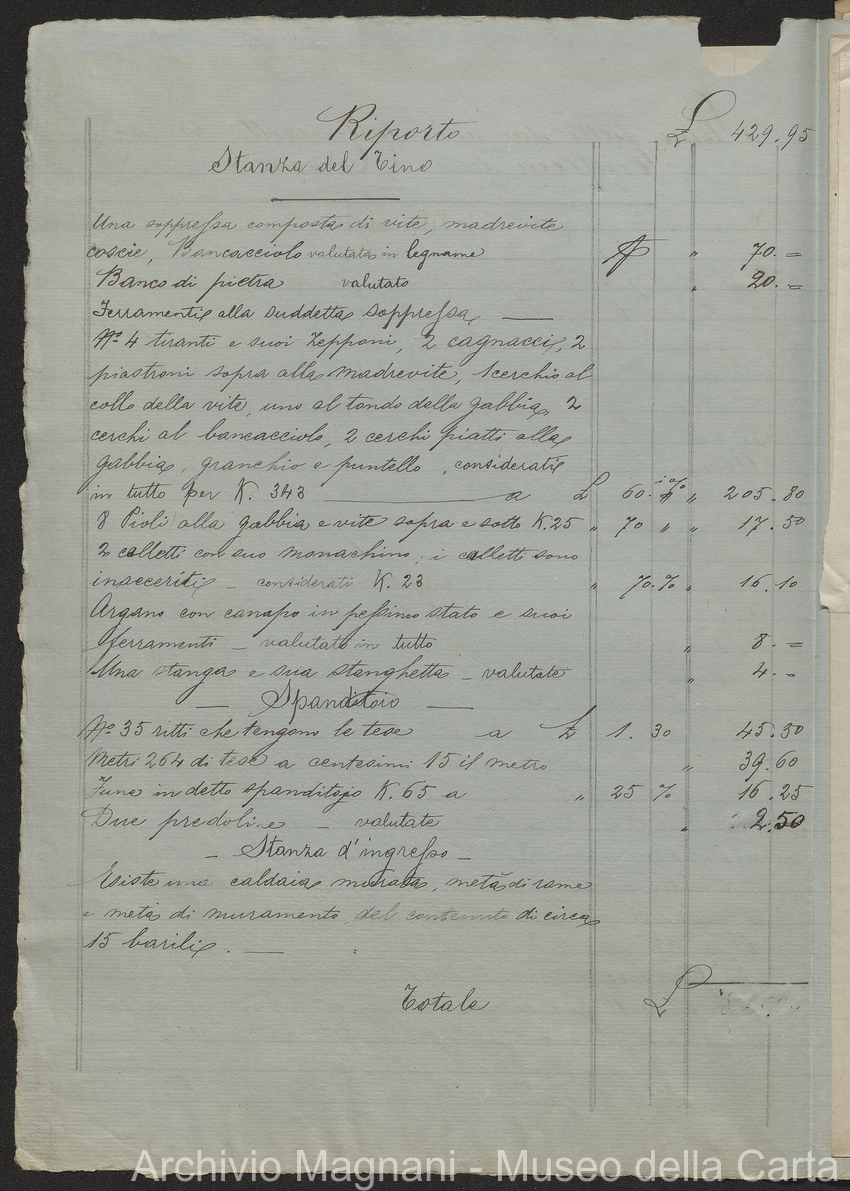 Riporto £ 429.95
Stanza del Tino
Una soppressa composta di vite, madrevite
coscie, Bancacciolo valutata in legname " 70. =
Banco di pietra valutato " 20. =
Ferramenti alla suddetta soppressa —
N.° 4 tiranti e suoi zepponi, 2 cagnacci, 2
piastroni sopra alla madrevite, 1 cerchio al
collo della vite, uno al tondo della gabbia, 2
cerchi al bancacciolo, 2 cerchi piatti alla
gabbia, granchio e puntello, considerati
in tutto per K. 343 — a £ 60. % " 205.80
8 Pioli alla gabbia e vite sopra e sotto K. 25 " 70 " " 17.50
2 colletti con suo monachino, i colletti sono
inacceriti — considerati K. 23 " 70. % " 16.10
Argano con canapo in pessimo stato e suoi
ferramenti — valutato in tutto " 8. =
Una stanga e sua stanghetta — valutate " 4. =
— Spanditoio —
N.° 35 ritti che tengono le tese a £ 1.30 45.50
Metri 264 di tese a centesimi 15 il metro " 39.60
Fune in detto spanditoio K. 65 a " 25 % 16.25
Due predoline — valutate " 2.50
— Stanza d'ingresso —
Esiste una caldaia murata, metà di rame
e metà di muramento del contenuto di circa
15 barili. —
Totale £
Archivio Magnani - Museo della Carta